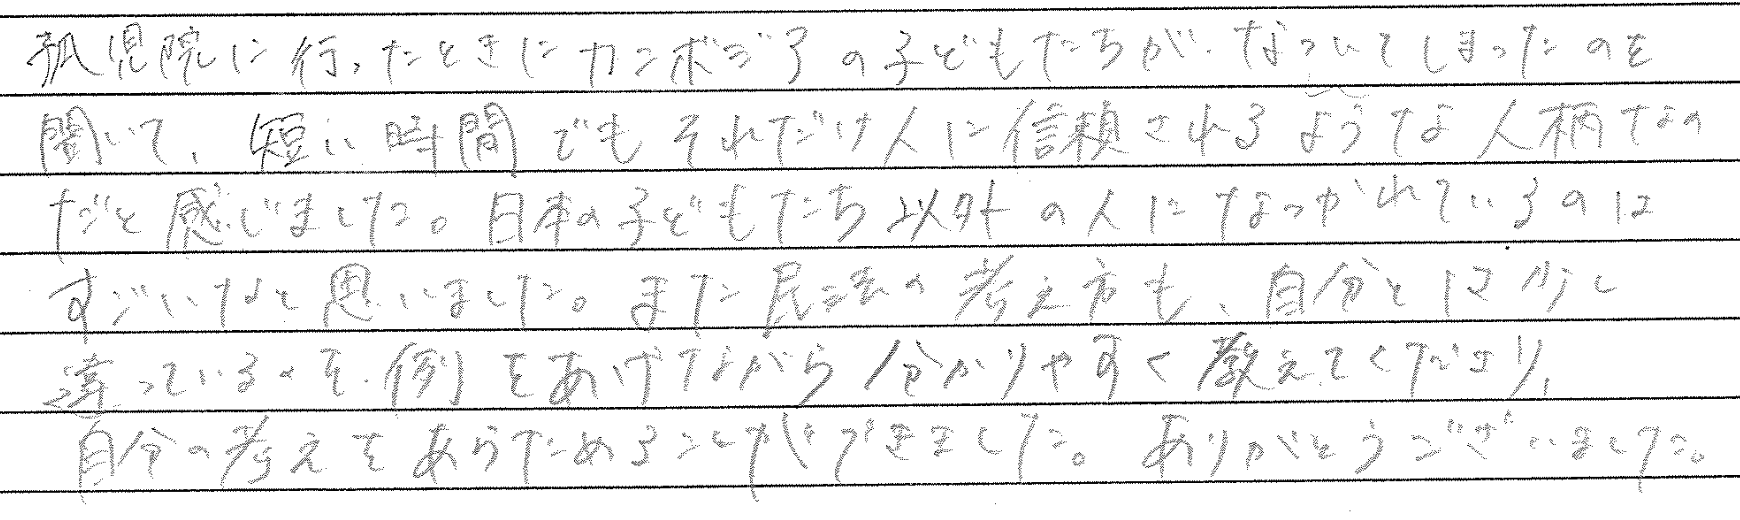 孤児院に行ったときにカンボジアの子どもたちが、なついてしまったのを
聞いて、短い時間でもそれだけ人に信頼されるような人柄なの
だと感じました。日本の子どもたち以外の人になつかれているのは
すごいなと思いました。また昆虫の考え方も、自分とは少し
違っているのを、例をあげながら分かりやすく教えてくださり、
自分の考えをあらためることができました。ありがとうございました。